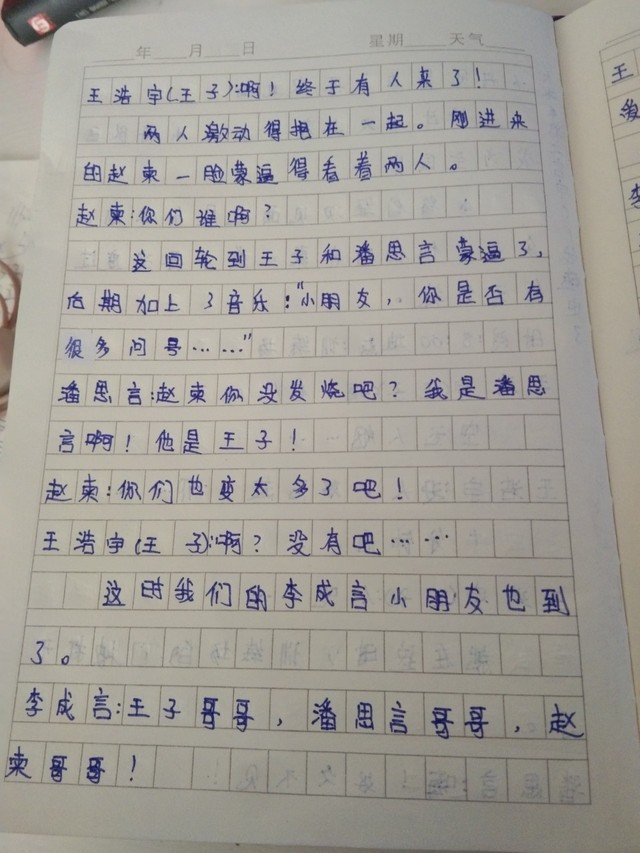 年 月 日 星期 天气
王浩宇(王子):啊！终于有人来了！
两人激动得抱在一起。刚进来
的赵柬一脸蒙逼得看着两人。
赵柬:你们谁啊？
这回轮到王子和潘思言蒙逼了,
后期加上了音乐:“小朋友,你是否有
很多问号……”
潘思言:赵柬你没发烧吧？我是潘思
言啊！他是王子！
赵柬:你们也变太多了吧！
王浩宇(王子):啊？没有吧……
这时我们的李成言小朋友也到
了。
李成言:王子哥哥,潘思言哥哥,赵
柬哥哥！